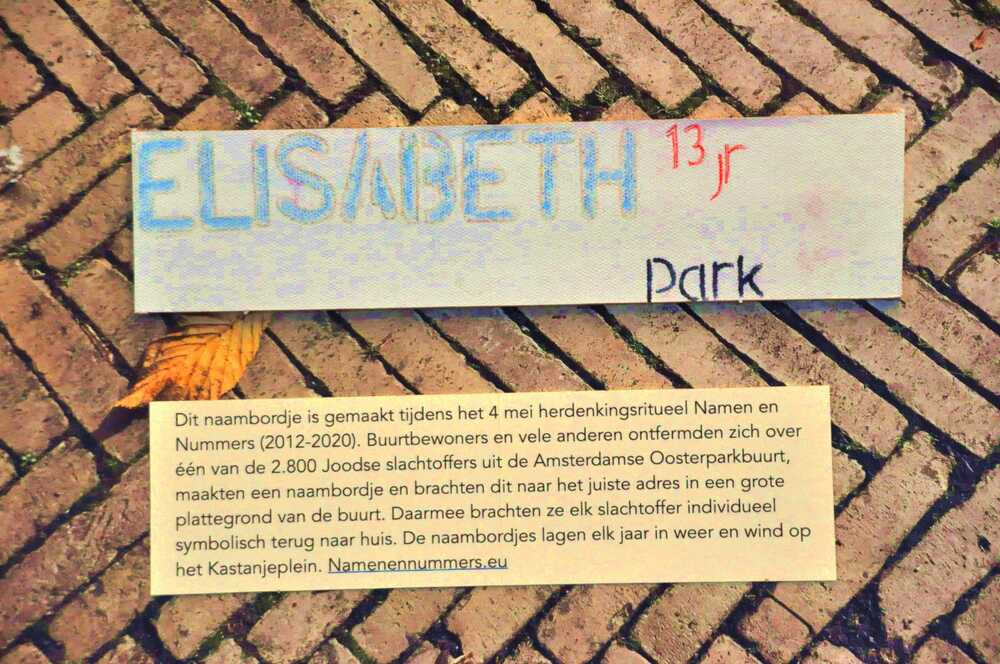 ELISABETH 13 jr
park
Dit naambordje is gemaakt tijdens het 4 mei herdenkingsritueel Namen en
Nummers (2012-2020). Buurtbewoners en vele anderen ontfermden zich over
één van de 2.800 Joodse slachtoffers uit de Amsterdamse Oosterparkbuurt,
maakten een naambordje en brachten dit naar het juiste adres in een grote
plattegrond van de buurt. Daarmee brachten ze elk slachtoffer individueel
symbolisch terug naar huis. De naambordjes lagen elk jaar in weer en wind op
het Kastanjeplein. Namenennummers.eu